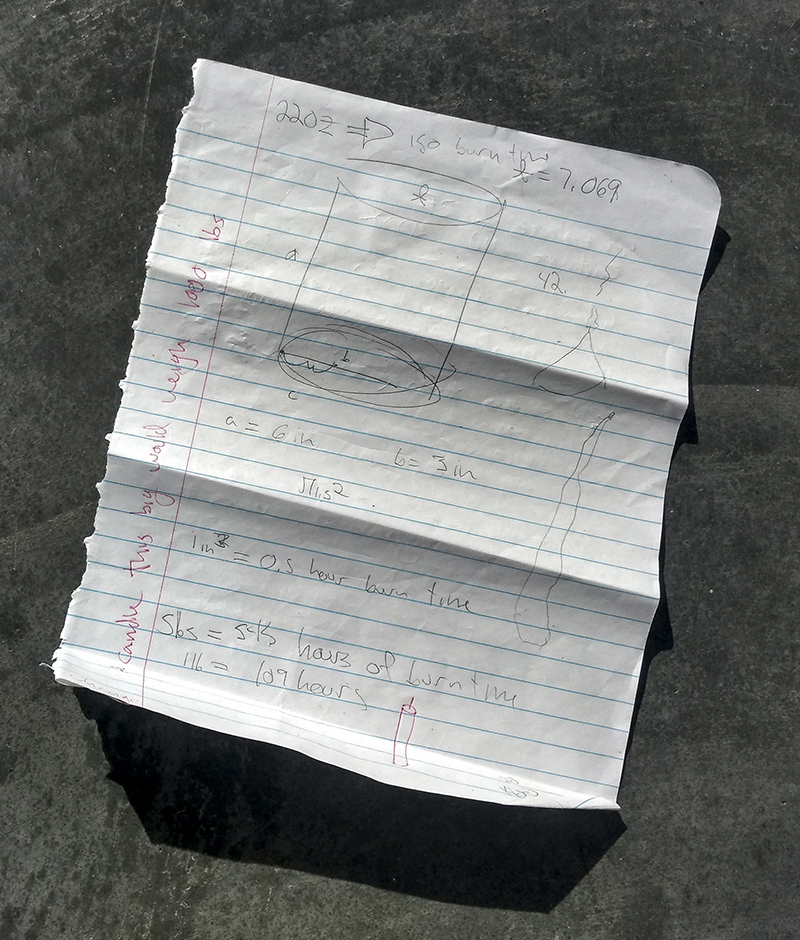 22oz ⇒ 150 burn time
= 7.069
a
42.
b
c
a = 6 in b = 3 in
= 0.5 hour burn time
5lbs = 545 hours of burn time
1lb = 109 hours
candle this big would weigh 1000 lbs